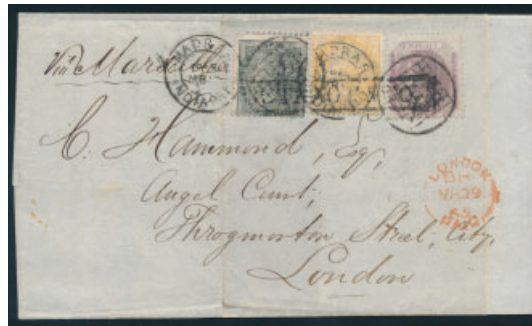 Via Marseilles
MADRAS
C. Hammond, Esq,
Angel Court,
Throgmorton Street, City,
London
LONDON
PAID